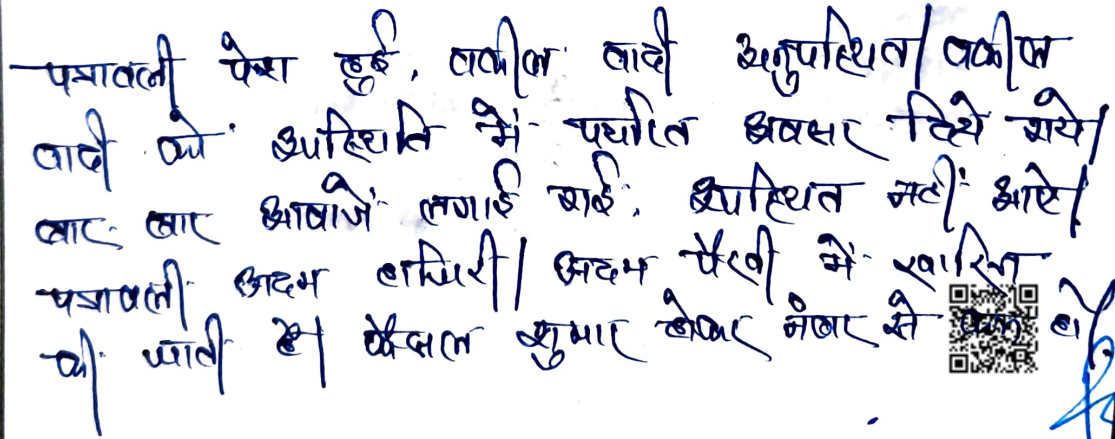 पत्रावली पेश हुई, वकील वादी अनुपस्थित। वकील
वादी को उपस्थिति में पर्याप्त अवसर दिये गये।
बार-बार आवाजें लगाई गई, उपस्थित नहीं आऐ।
पत्रावली अदम हाजिरी। अदम पैरवी में खारिज
की जाती है। फैसल शुमार होकर नंबर से हो